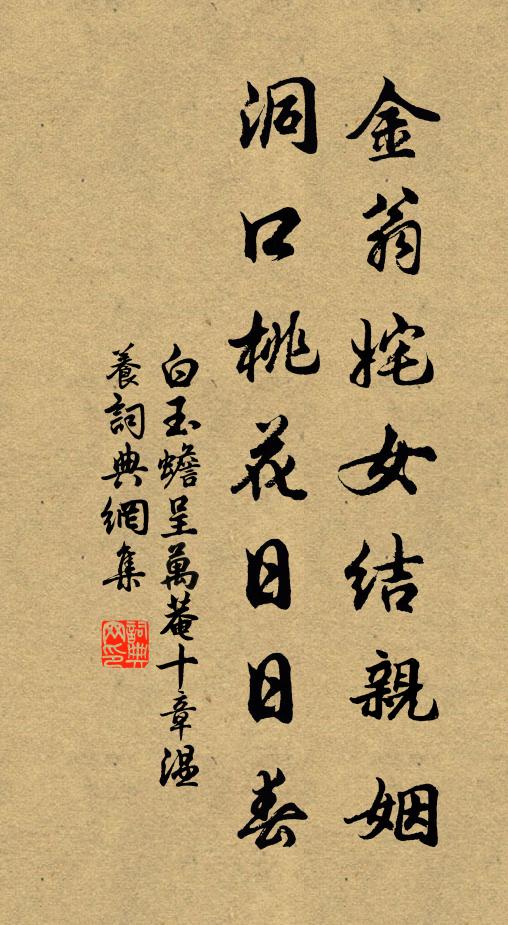 金翁姹女結親姻
洞口桃花日日春
白玉蟾呈萬菴十章溫
養詞典網集
詞典網印